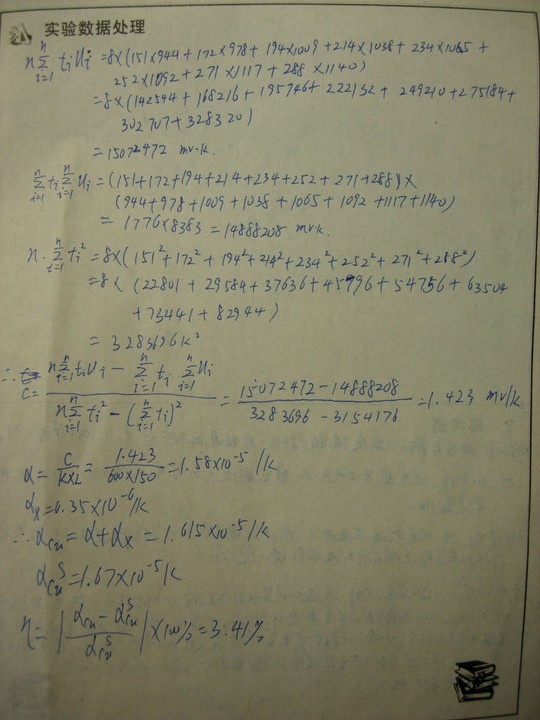 实验数据处理
n∑_{i=1}^{n} tᵢUᵢ = 8×(151×944 + 172×978 + 194×1009 + 214×1038 + 234×1065 +
252×1092 + 271×1117 + 288×1140)
= 8×(142544 + 168216 + 195746 + 222132 + 249210 + 275184 +
302707 + 328320)
= 15072472 mv·k.
∑_{i=1}^{n} tᵢ ∑_{i=1}^{n} Uᵢ = (151+172+194+214+234+252+271+288)×
(944+978+1009+1038+1065+1092+1117+1140)
= 1776×8383 = 14888208 mv·k.
n·∑_{i=1}^{n} tᵢ² = 8×(151²+172²+194²+214²+234²+252²+271²+288²)
= 8×(22801 + 29584 + 37636 + 45796 + 54756 + 63504
+ 73441 + 82944)
= 3283696 k²
∴ C = (n∑_{i=1}^{n} tᵢUᵢ − ∑_{i=1}^{n} tᵢ ∑_{i=1}^{n} Uᵢ) / (n∑_{i=1}^{n} tᵢ² − (∑_{i=1}^{n} tᵢ)²) = (15072472−14888208) / (3283696−3154176) = 1.423 mv/k
α = C/(K×L) = 1.423/(600×150) = 1.58×10⁻⁵ /k
αₓ = 0.35×10⁻⁶/k
∴ α_cu = α+αₓ = 1.615×10⁻⁵/k
α_cu^S = 1.67×10⁻⁵/k
η = |(α_cu − α_cu^S)/α_cu^S| ×100% = 3.41%